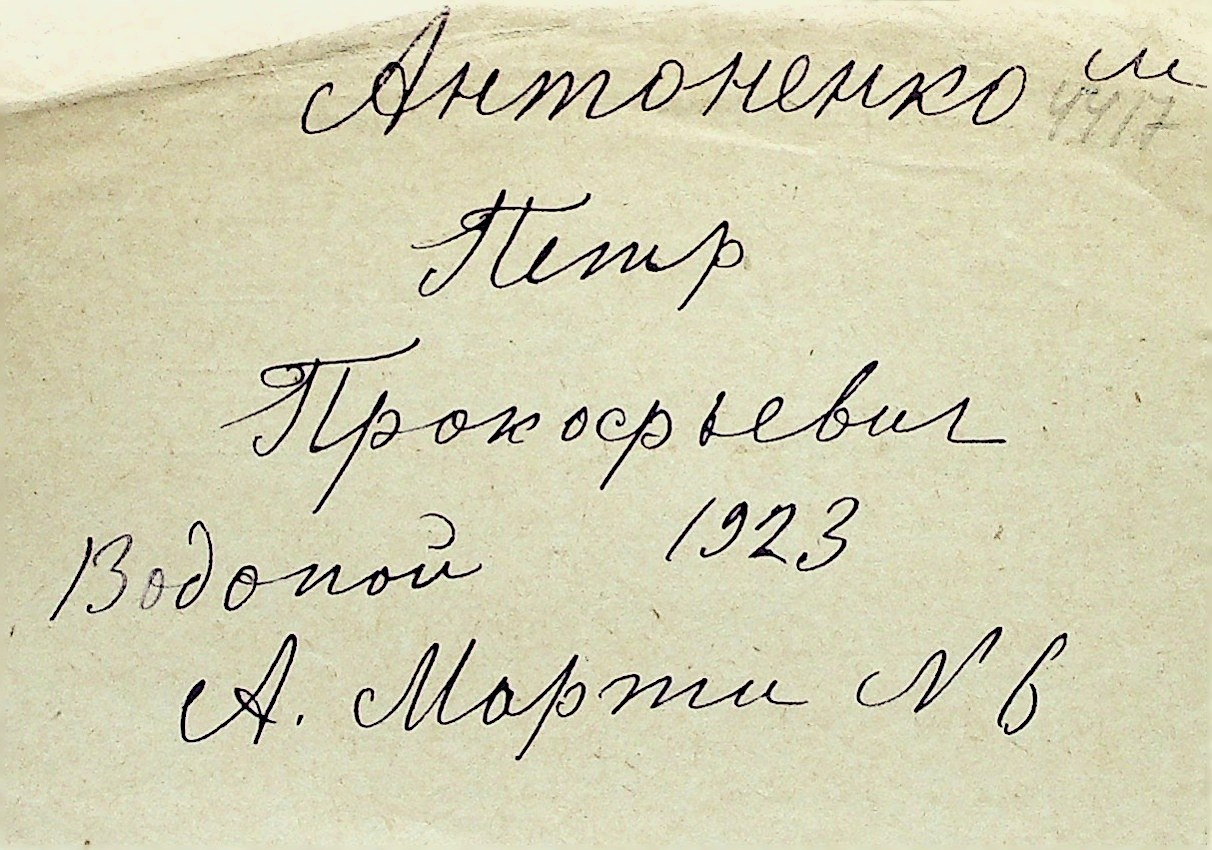 Антоненко м
4417
Петр
Прокофьевич
Водопой 1923
А. Марти N 6